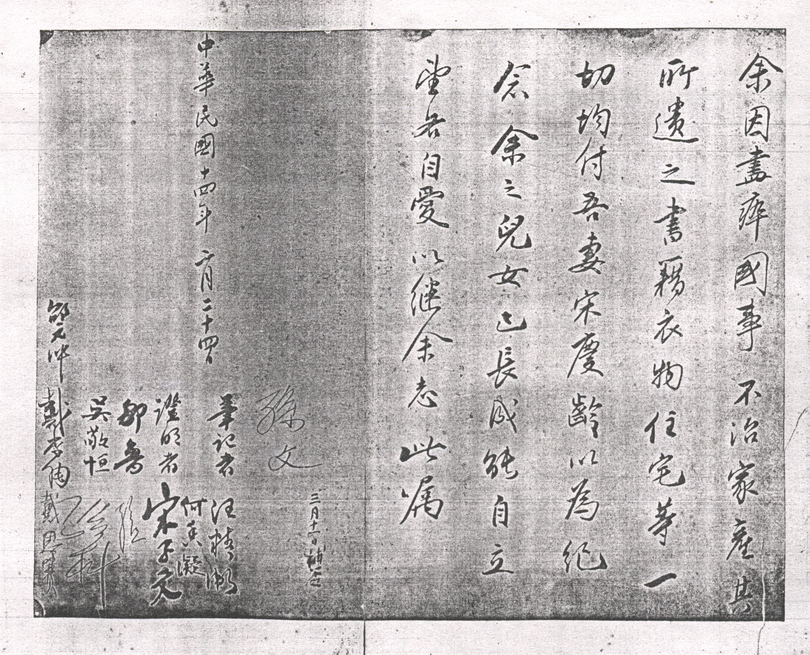 余因盡瘁國事不治家產其
所遺之書籍衣物住宅等一
切均付吾妻宋慶齡以為紀
念余之兒女已長成能自立
望各自愛以继余志此嘱
三月十一日補簽
孫文
中華民國十四年二月二十四日
筆記者 汪精衛
何香凝
證明者 宋子文
孫科
邹魯
吳敬恒
戴恩賽
戴季陶
邵元冲